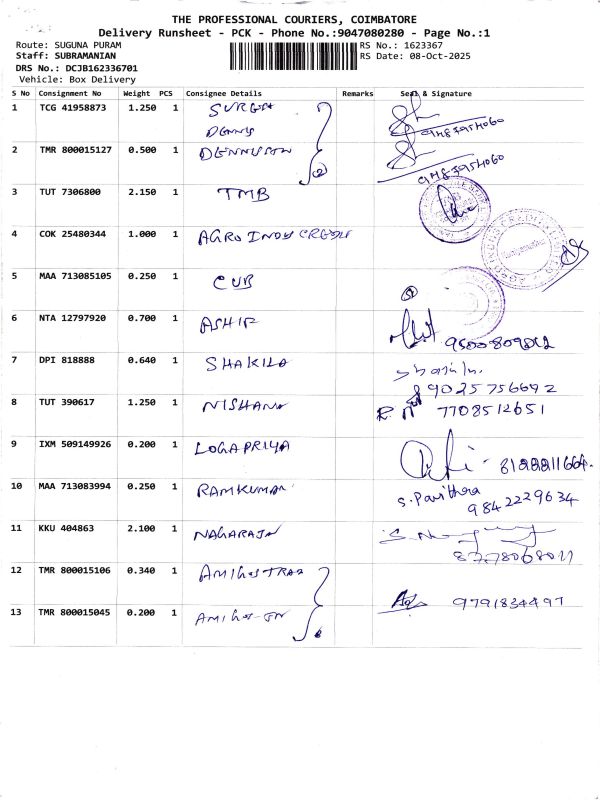 THE PROFESSIONAL COURIERS, COIMBATORE
Delivery Runsheet - PCK - Phone No.:9047080280 - Page No.:1
Route: SUGUNA PURAM
RS No.: 1623367
Staff: SUBRAMANIAN
RS Date: 08-Oct-2025
DRS No.: DCJB162336701
Vehicle: Box Delivery
S No Consignment No Weight PCS Consignee Details Remarks Seal & Signature
1 TCG 41958873 1.250 1
2 TMR 800015127 0.500 1
3 TUT 7306800 2.150 1 TMB
4 COK 25480344 1.000 1 AGRO
5 MAA 713085105 0.250 1 CUB
6 NTA 12797920 0.700 1
7 DPI 818888 0.640 1 SHAKILA
8 TUT 390617 1.250 1 NISHANA 7708512651
9 IXM 509149926 0.200 1 LOGAPRIYA
10 MAA 713083994 0.250 1 RAMKUMAR S. Pavithra
9842229634
11 KKU 404863 2.100 1 NAGARAJN
12 TMR 800015106 0.340 1
9791834497
13 TMR 800015045 0.200 1